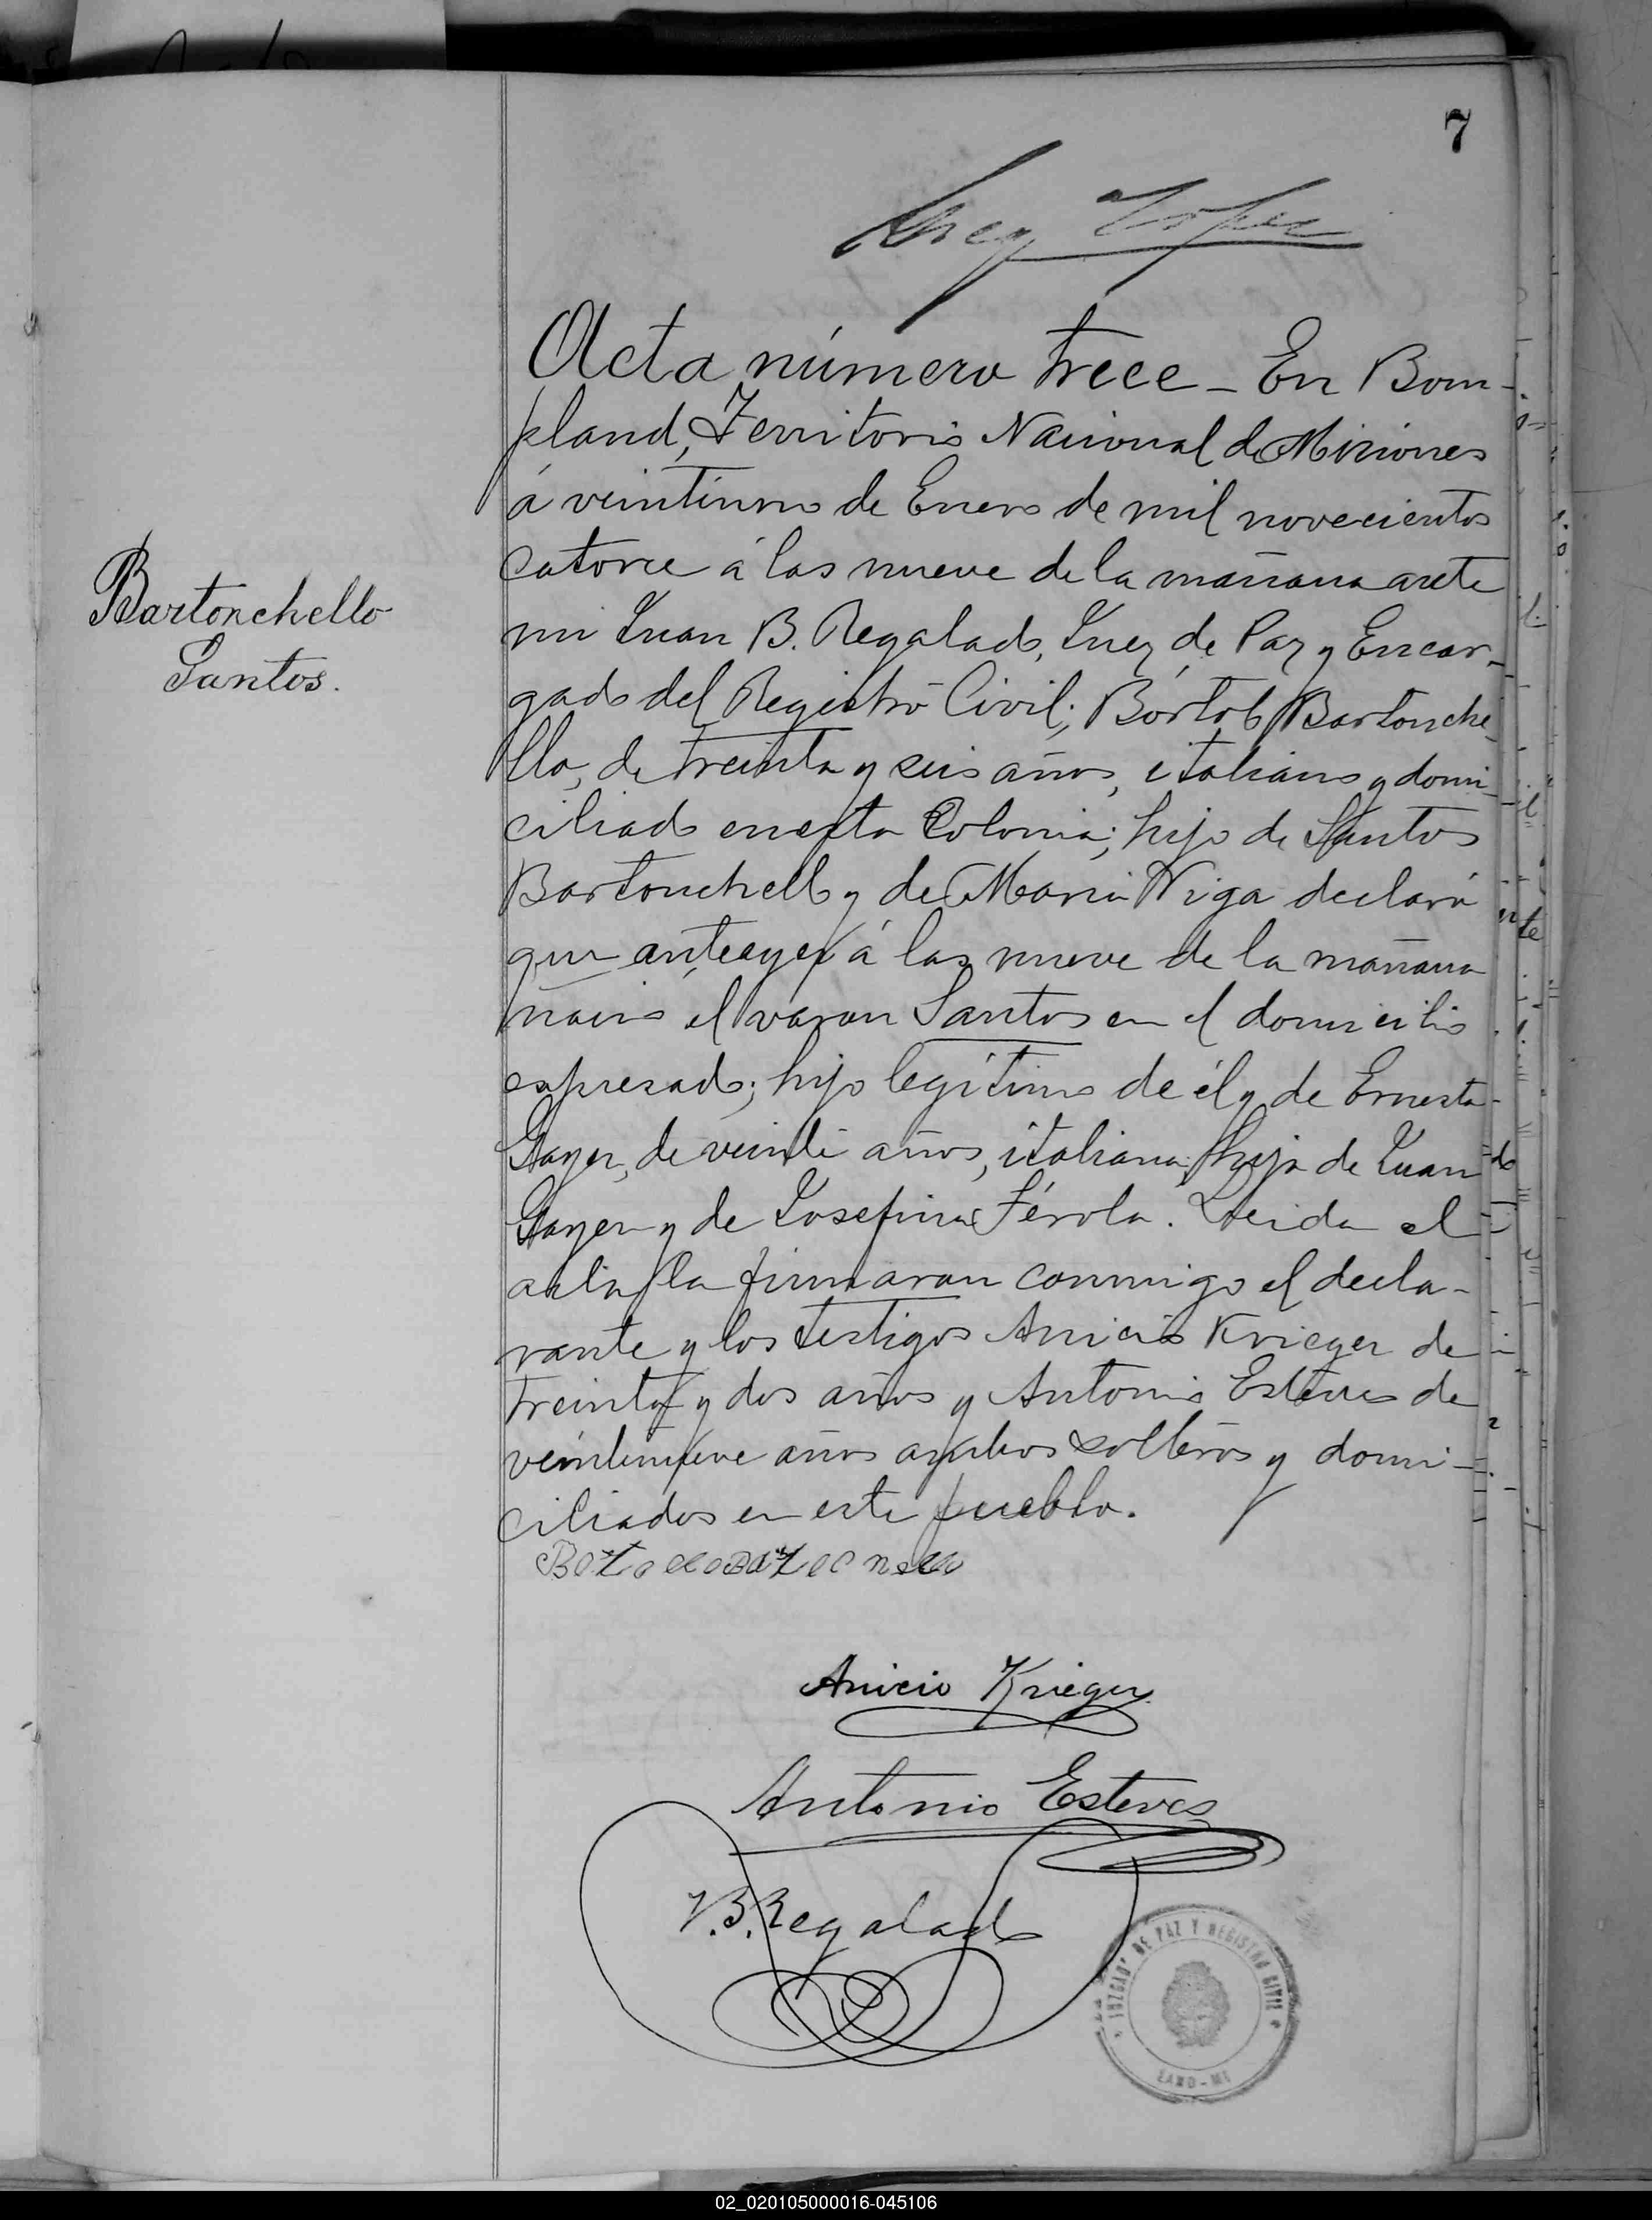 7
Acta número trece - En Bom-
pland, Territorio Nacional de Misiones
á veintiuno de Enero de mil novecientos
catorce á las nueve de la mañana ante
mi Juan B. Regalado, Juez de Paz y Encar-
gado del Registro Civil; Bórtolo Bartonche-
llo, de treinta y seis años, italiano y domi-
ciliado en esta Colonia; hijo de Santos
Bartonchello y de Maria Niga declaró
que anteayer á las nueve de la mañana
nació el varon Santos en el domicilio
expresado; hijo legítimo de él y de Ernesta
Gayer, de veinte años, italiana, hija de Juan
Gayer y de Josefina Férola. Leida el
acta la firmaron conmigo el decla-
rante y los testigos Anicio Krieger de
treinta y dos años y Antonio Esteves de
veintinueve años ambos solteros y domi-
ciliados en este pueblo.
Bartonchello
Santos.
Anicio Krieger
Antonio Esteves
J.B. Regalado
JUZGADO DE PAZ Y REGISTRO CIVIL
LAND - MI
02_020105000016-045106